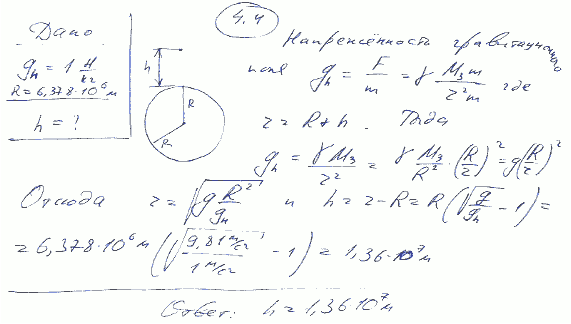 4.4
Дано
gₕ = 1 Н/кг
R = 6,378·10⁶ м
h = ?
h
R
R
Напряжённость гравитационного
поля gₕ = F/m = γ M₃m/r²m где
r = R + h. Тогда
gₕ = γM₃/r² = γ M₃/R² · (R/r)² = g(R/r)²
Отсюда r = √(g R²/gₕ) и h = r - R = R(√(g/gₕ) - 1) =
= 6,378·10⁶ м (√(9,81 м/с²/1 м/с²) - 1) = 1,36·10⁷ м
Ответ: h = 1,36·10⁷ м